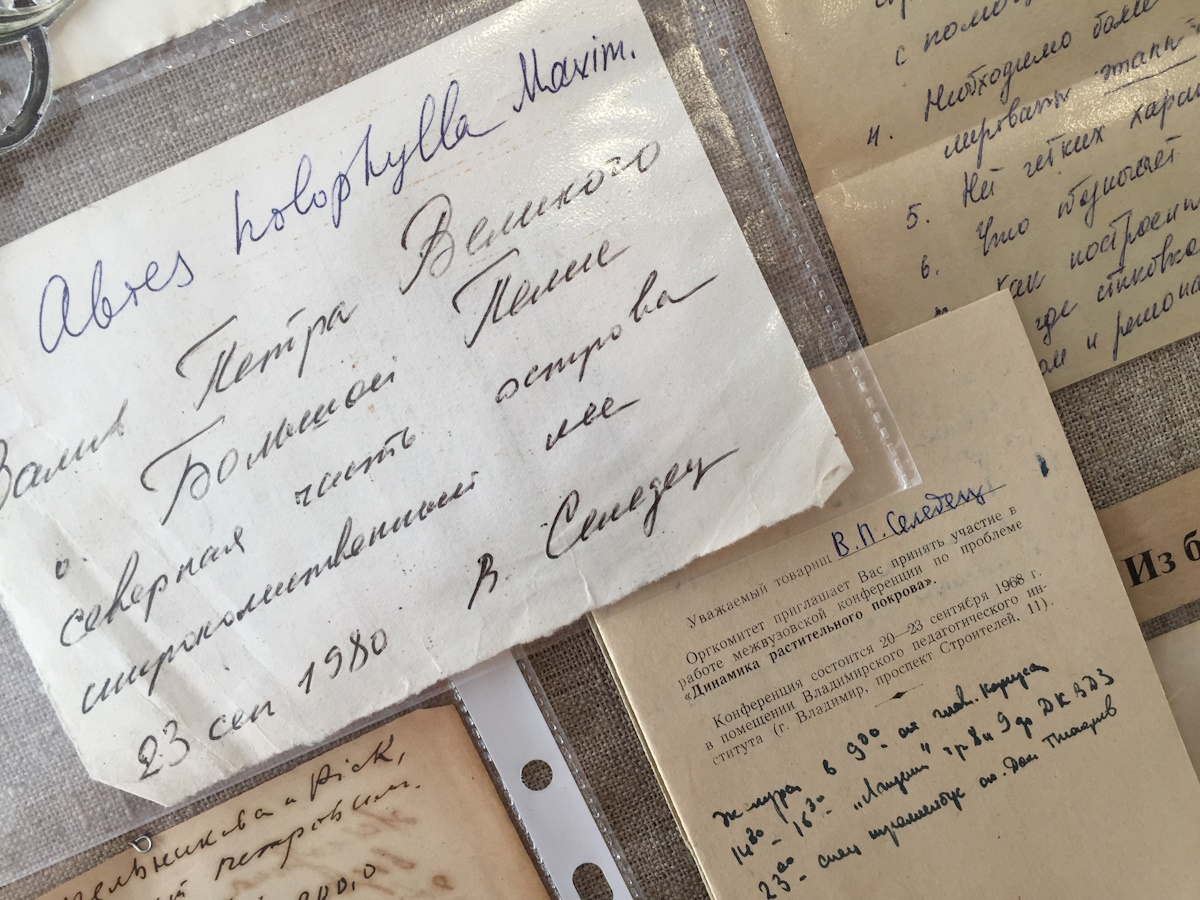 Abies holophylla Maxim.
Залив Петра Великого
о. Большой Пелис
северная часть острова
широколиственный лес
23 сен 1980 В. Селедец
с помощ
4. Необходимо более
мировать этапы
5. Нет четких харак
6. Что обозначает
как построени
где стыковка
ом и ремона
Уважаемый товарищ В.П. Селедец
Оргкомитет приглашает Вас принять участие в
работе межвузовской конференции по проблеме
«Динамика растительного покрова».
Конференция состоится 20—23 сентября 1968 г.
в помещении Владимирского педагогического ин-
ститута (г. Владимир, проспект Строителей, 11).
Экскурс в 9⁰⁰ от глав. корпуса
14³⁰ - 16³⁰ - гр. 8 и 9 до ДК ВДЗ
23⁰⁰ - спец троллейбус от
Из б
ельникова и Rick,
петровым.